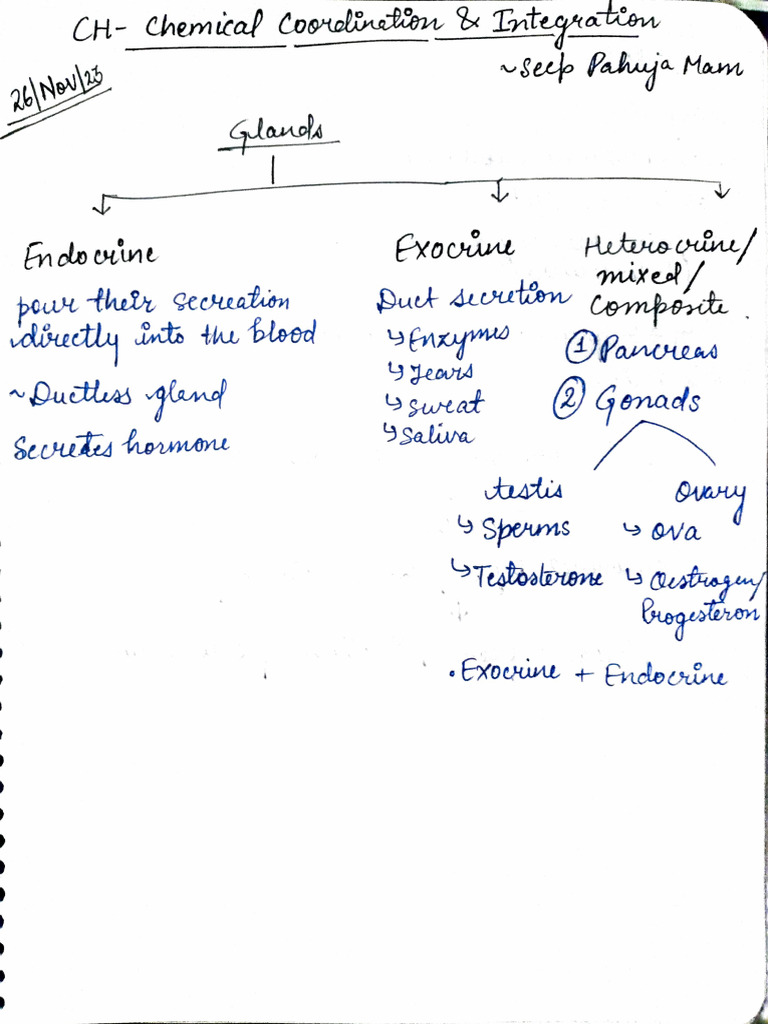 CH- Chemical Coordination & Integration
~Seep Pahuja Mam
26/Nov/23
Glands
Endocrine
pour their secreation
directly into the blood
~Ductless gland
Secretes hormone
Exocrine
Duct secretion
↳Enzymes
↳Tears
↳Sweat
↳Saliva
Heterocrine/
mixed/
Composite.
① Pancreas
② Gonads
testis
↳ Sperms
↳Testosterone
Ovary
↳ Ova
↳ Oestrogen/
Progesteron
•Exocrine + Endocrine